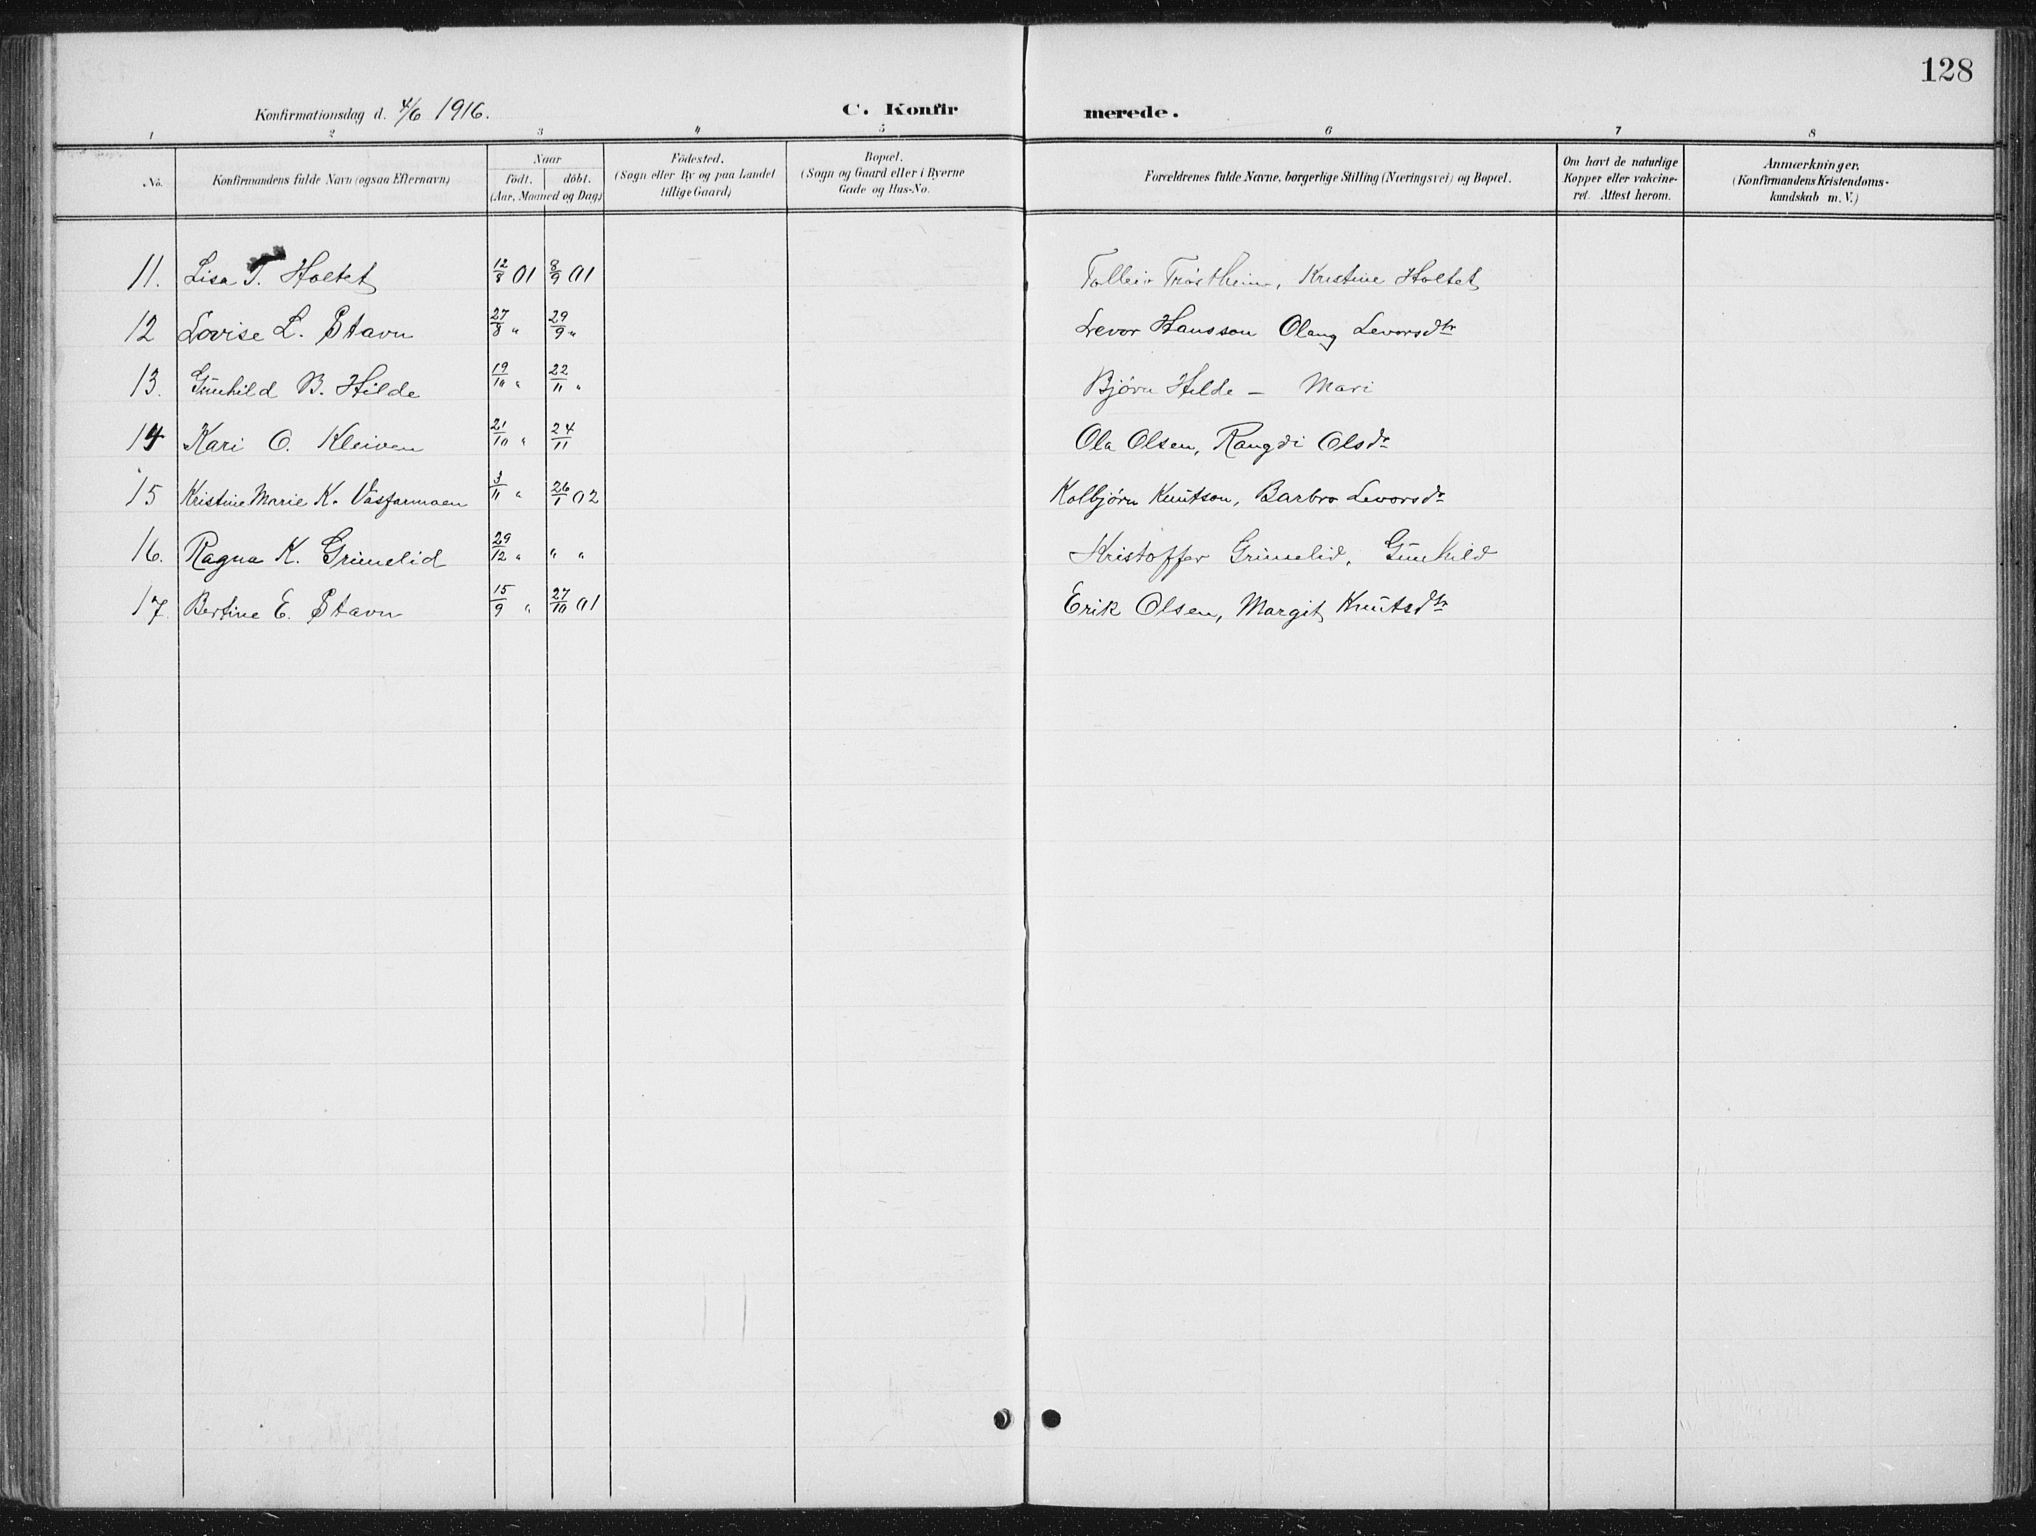 128
Konfirmationsdag d. 4/6 1916. C. Konfirmerede.
1 2 3 4 5 6 7 8
No. Konfirmandens fulde Navn (ogsaa Efternavn) Naar födt. döbt. (Aar, Maaned og Dag) Födested. (Sogn eller By og paa Landet tillige Gaard) Bopæl. (Sogn og Gaard eller i Byerne Gade og Hus-No. Forældrenes fulde Navne, borgerlige Stilling (Næringsvei) og Bopæl. Om havt de naturlige Kopper eller vakcineret. Attest herom. Anmærkninger. (Konfirmandens Kristendomskundskab m. V.)
11. Lisa T. Holtet 12/8 01 8/9 01 Tolleiv Trøstheim, Kristine Holtet
12 Lovise L. Stavn 27/8 " 29/9 " Levor Hansson Olaug Levorsdtr
13. Gunhild B. Hilde 19/10 " 22/11 " Bjørn Hilde – Mari
14 Kari O. Kleiven 21/10 " 24/11 Ola Olsen, Rangdi Olsdr
15 Kristine Marie K. Vasfarmoen 3/11 " 26/1 02 Kolbjørn Knutson, Barbro Levorsdr
16. Ragna K. Grimelid 29/12 " " " Kristoffer Grimelid, Gunhild
17. Bertine E. Stavn 15/9 " 27/10 01 Erik Olsen, Margit Knutsdtr